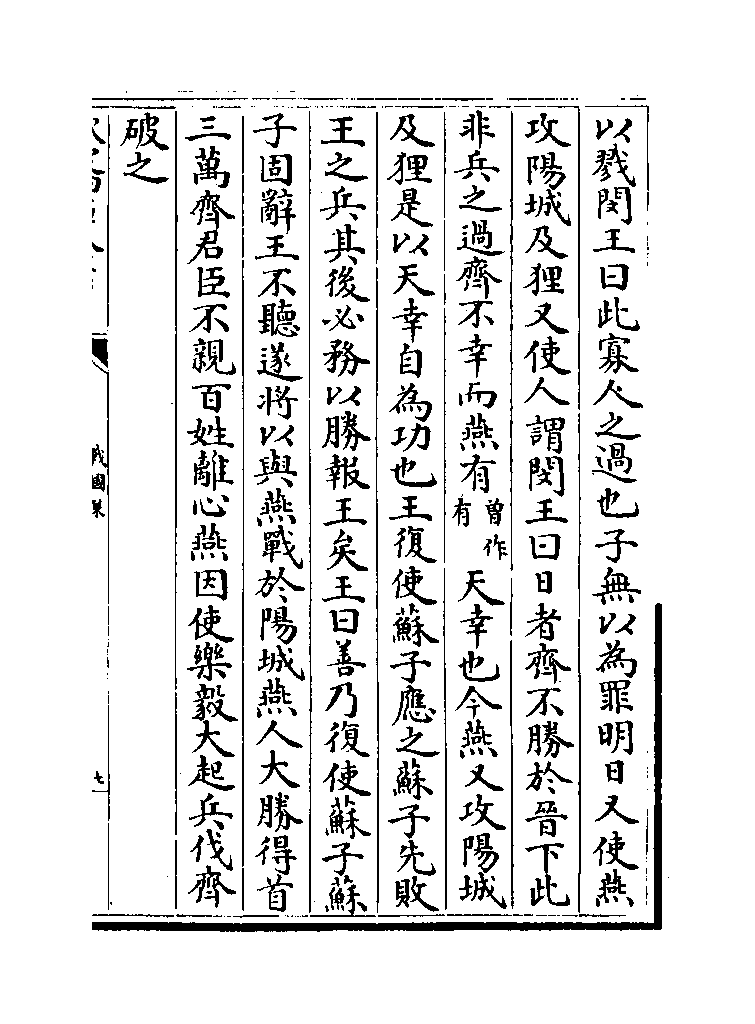 以戮閔王曰此寡人之過也子無以為罪明日又使燕
攻陽城及狸又使人謂閔王曰日者齊不勝於晉下此
非兵之過齊不幸而燕有曾作有天幸也今燕又攻陽城
及狸是以天幸自為功也王復使蘇子應之蘇子先敗
王之兵其後必務以勝報王矣王曰善乃復使蘇子蘇
子固辭王不聽遂將以與燕戰於陽城燕人大勝得首
三萬齊君臣不親百姓離心燕因使樂毅大起兵伐齊
破之
戰國策
七